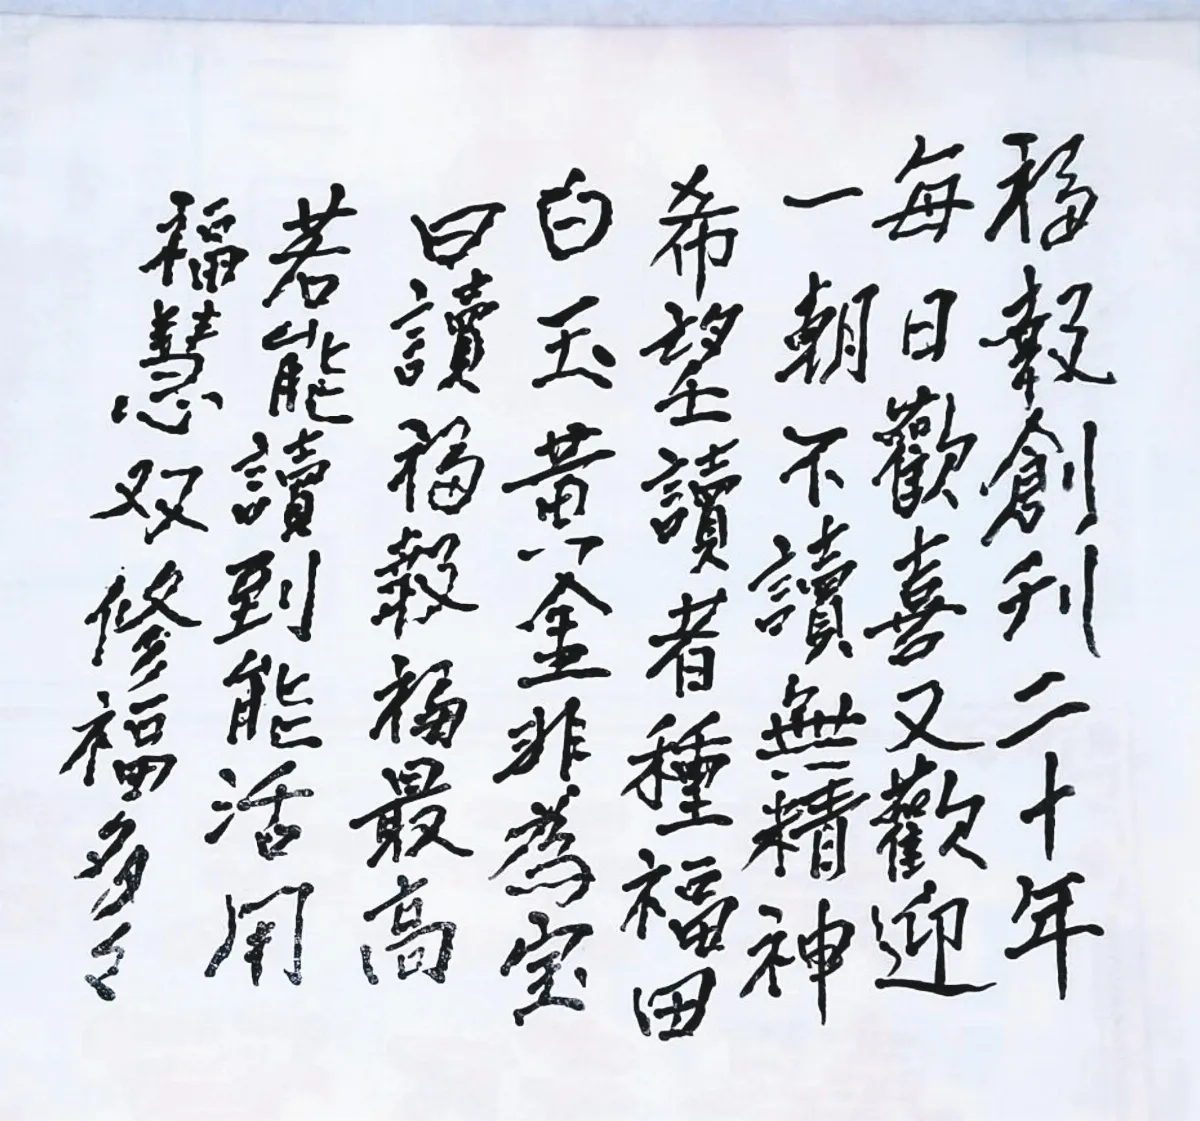 福報創刊二十年
每日歡喜又歡迎
一朝不讀無精神
希望讀者種福田
白玉黃金非為宝
曰讀福報福最高
若能讀到能活用
福慧双修福多々